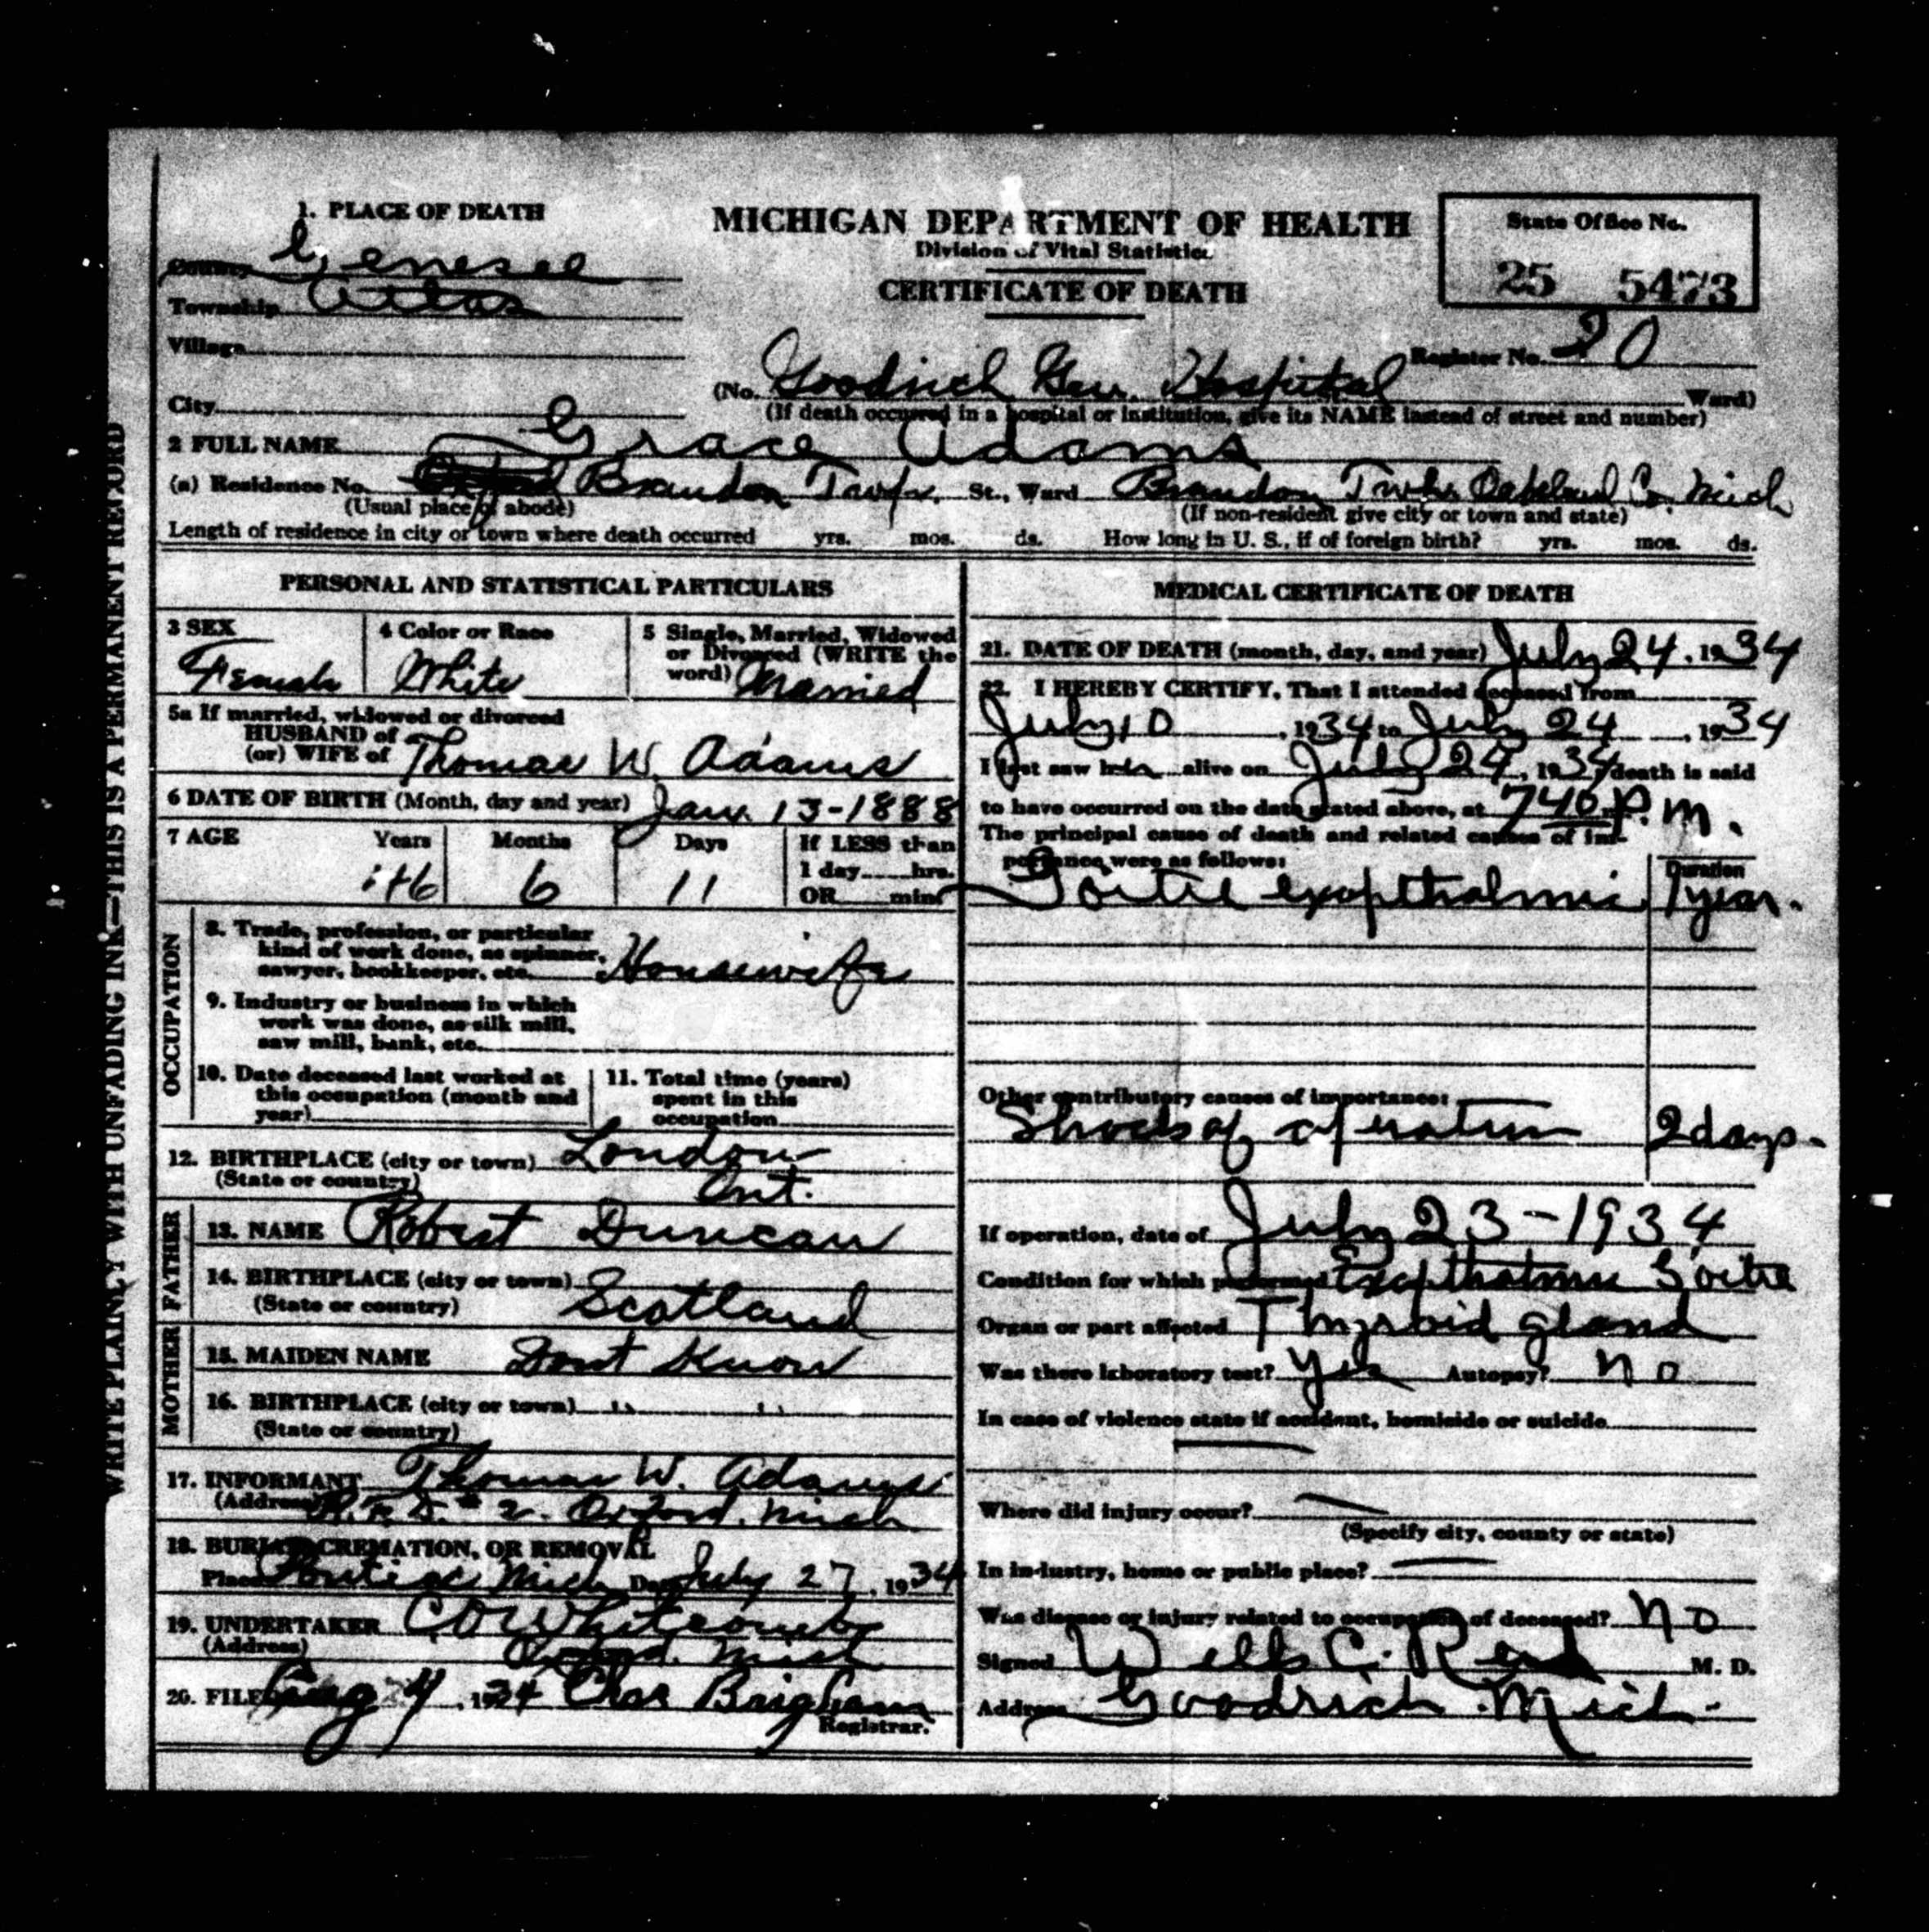 1. PLACE OF DEATH
County Genesee
Township Atlas
Village
City
MICHIGAN DEPARTMENT OF HEALTH
Division of Vital Statistics
CERTIFICATE OF DEATH
State Office No.
25 5473
Register No. 20
(No. Goodrich Gen. Hospital Ward)
(If death occurred in a hospital or institution, give its NAME instead of street and number)
2 FULL NAME Grace Adams
(a) Residence No. Brandon Twp. St., Ward Brandon Twp. Oakland Co. Mich
(Usual place of abode) (If non-resident give city or town and state)
Length of residence in city or town where death occurred yrs. mos. ds. How long in U. S., if of foreign birth? yrs. mos. ds.
WRITE PLAINLY WITH UNFADING INK—THIS IS A PERMANENT RECORD
PERSONAL AND STATISTICAL PARTICULARS
3 SEX
Female
4 Color or Race
White
5 Single, Married, Widowed
or Divorced (WRITE the
word) Married
5a If married, widowed or divorced
HUSBAND of
(or) WIFE of Thomas W. Adams
6 DATE OF BIRTH (Month, day and year) Jan. 13-1888
7 AGE Years Months Days
46 6 11
If LESS than
1 day hrs.
OR min
OCCUPATION
8. Trade, profession, or particular
kind of work done, as spinner,
sawyer, bookkeeper, etc. Housewife
9. Industry or business in which
work was done, as silk mill,
saw mill, bank, etc.
10. Date deceased last worked at
this occupation (month and
year)
11. Total time (years)
spent in this
occupation
12. BIRTHPLACE (city or town) London
(State or country) Ont.
FATHER
13. NAME Robert Duncan
14. BIRTHPLACE (city or town)
(State or country) Scotland
MOTHER
15. MAIDEN NAME Dont Know
16. BIRTHPLACE (city or town) " "
(State or country)
17. INFORMANT Thomas W. Adams
(Address) R.F.D. # 2. Oxford, Mich
18. BURIAL, CREMATION, OR REMOVAL
Place Pontiac Mich Date July 27, 1934
19. UNDERTAKER C O Whitcomb
(Address) Oxford. Mich
20. FILED Aug 4, 1934 Chas Brigham
Registrar.
MEDICAL CERTIFICATE OF DEATH
21. DATE OF DEATH (month, day, and year) July 24, 1934
22. I HEREBY CERTIFY, That I attended deceased from
July 10, 1934 to July 24, 1934
I last saw her alive on July 24, 1934, death is said
to have occurred on the date stated above, at 740 P. m.
The principal cause of death and related causes of im-
portance were as follows:
Duration
Goitre exopthalmic 1 year.
Other contributory causes of importance:
Shock of operation 2 days.
If operation, date of July 23-1934
Condition for which performed Exopthalmic Goitre
Organ or part affected Thyroid gland
Was there laboratory test? Yes Autopsy? No
In case of violence state if accident, homicide or suicide
Where did injury occur?
(Specify city, county or state)
In industry, home or public place?
Was disease or injury related to occupation of deceased? No
Signed Wells C. Reid M. D.
Address Goodrich Mich.